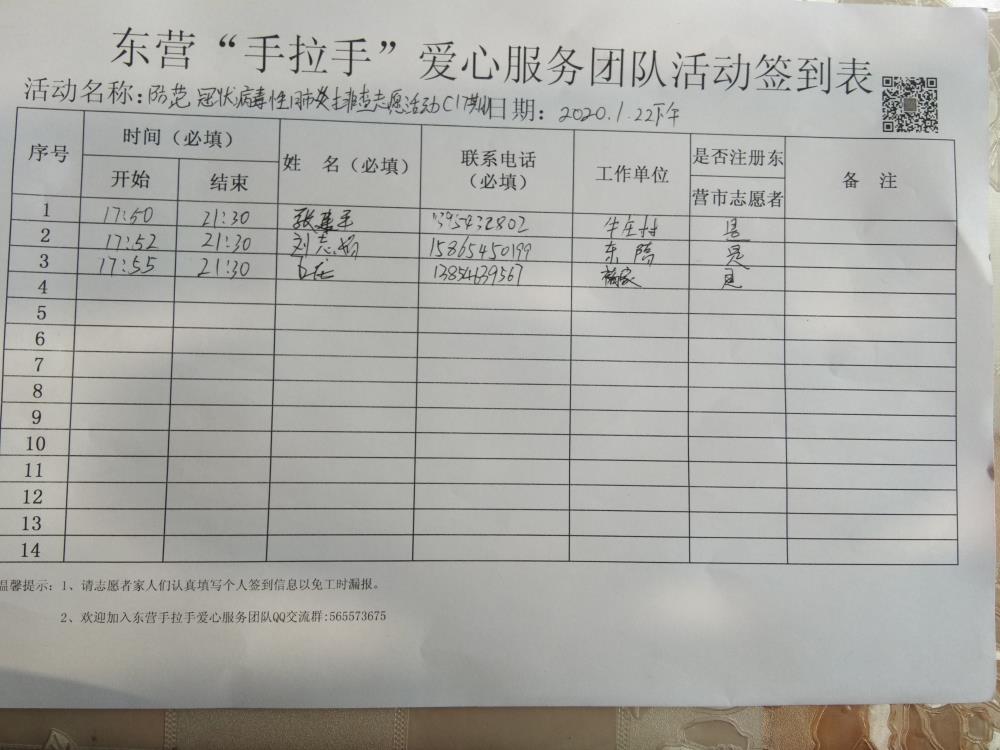 东营“手拉手”爱心服务团队活动签到表
活动名称：防范冠状病毒性肺炎排查志愿活动 日期：2020.1.22下午
序号 时间（必填） 姓 名（必填） 联系电话（必填） 工作单位 是否注册东营市志愿者 备 注
开始 结束
1 17:50 21:30 牛庄村 是
2 17:52 21:30 刘志 15865450199 东 是
3 17:55 21:30 13854639567 是
4
5
6
7
8
9
10
11
12
13
14
温馨提示：1、请志愿者家人们认真填写个人签到信息以免工时漏报。
2、欢迎加入东营手拉手爱心服务团队QQ交流群:565573675